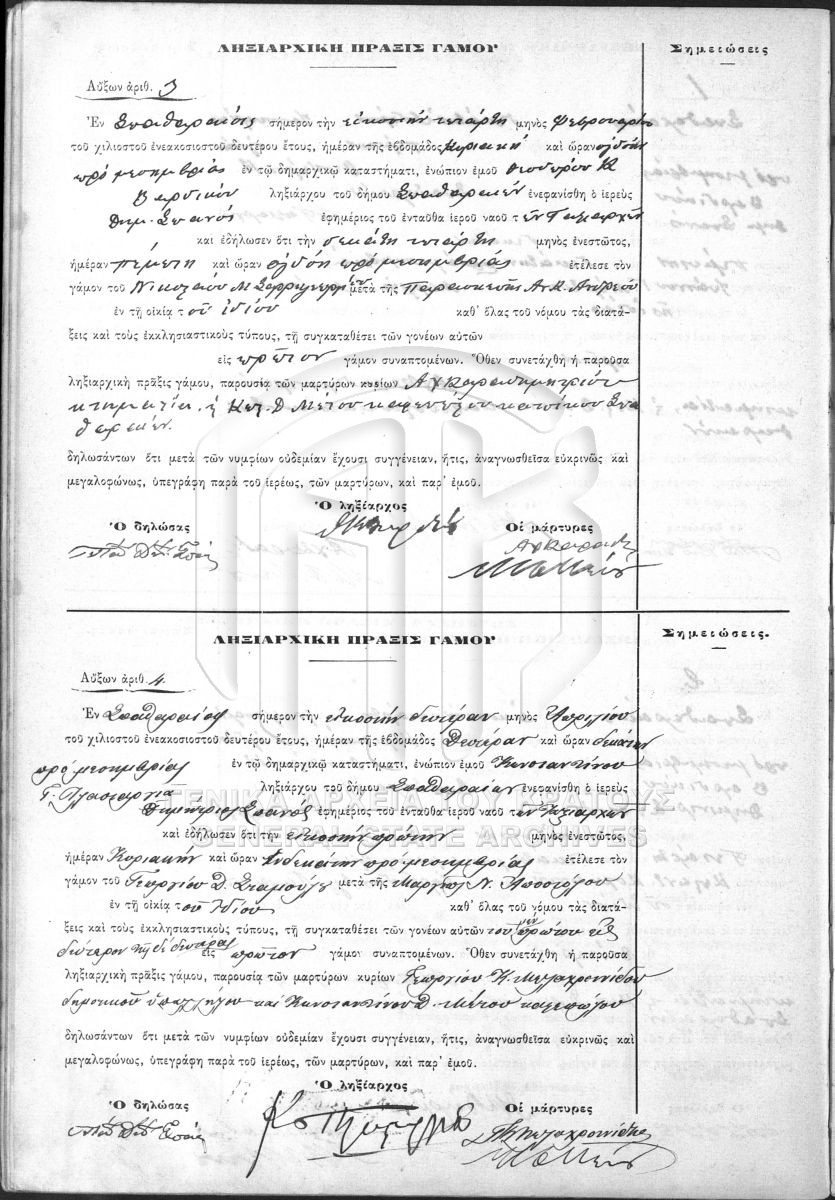 ΛΗΞΙΑΡΧΙΚΗ ΠΡΑΞΙΣ ΓΑΜΟΥ
Σημειώσεις
Αὔξων ἀριθ. 3
Ἐν Σπαθαραίοις σήμερον τὴν εἰκοστὴν τετάρτη μηνὸς Φεβρουαρίου
τοῦ χιλιοστοῦ ἐνεακοσιοστοῦ δευτέρου ἔτους, ἡμέραν τῆς ἑβδομάδος Κυριακὴ καὶ ὥραν ὀγδόη
πρὸ μεσημβρίας ἐν τῷ δημαρχικῷ καταστήματι, ἐνώπιον ἐμοῦ Θεοδώρου Κ
ληξιάρχου τοῦ δήμου Σπαθαραίων ἐνεφανίσθη ὁ ἱερεὺς
Δημ. Σπανός ἐφημέριος τοῦ ἐνταῦθα ἱεροῦ ναοῦ τῶν Ταξιαρχῶν
καὶ ἐδήλωσεν ὅτι τὴν δεκάτη τετάρτη μηνὸς ἐνεστῶτος,
ἡμέραν πέμπτη καὶ ὥραν ὀγδόη πρὸ μεσημβρίας ἐτέλεσε τὸν
γάμον τοῦ Νικολάου Μ. μετὰ τῆς Παρασκευῆς
ἐν τῇ οἰκίᾳ τοῦ ἰδίου καθ᾽ ὅλας τοῦ νόμου τὰς διατά-
ξεις καὶ τοὺς ἐκκλησιαστικοὺς τύπους, τῇ συγκαταθέσει τῶν γονέων αὐτῶν
εἰς πρῶτον γάμον συναπτομένων. Ὅθεν συνετάχθη ἡ παροῦσα
ληξιαρχικὴ πρᾶξις γάμου, παρουσίᾳ τῶν μαρτύρων κυρίων Α Χ Καραδημητρίου
κτηματία, ἡ Κωσ. Δ. Μέτου καφεπώλου κατοίκου Σπα
θαραίων
δηλωσάντων ὅτι μετὰ τῶν νυμφίων οὐδεμίαν ἔχουσι συγγένειαν, ἥτις, ἀναγνωσθεῖσα εὐκρινῶς καὶ
μεγαλοφώνως, ὑπεγράφη παρὰ τοῦ ἱερέως, τῶν μαρτύρων, καὶ παρ᾽ ἐμοῦ.
Ὁ ληξίαρχος
Ὁ δηλώσας
Οἱ μάρτυρες
ΛΗΞΙΑΡΧΙΚΗ ΠΡΑΞΙΣ ΓΑΜΟΥ
Σημειώσεις.
Αὔξων ἀριθ. 4
Ἐν Σπαθαραίοις σήμερον τὴν εἰκοστὴν δευτέραν μηνὸς Ἀπριλίου
τοῦ χιλιοστοῦ ἐνεακοσιοστοῦ δευτέρου ἔτους, ἡμέραν τῆς ἑβδομάδος Δευτέραν καὶ ὥραν δεκάτην
πρὸ μεσημβρίας ἐν τῷ δημαρχικῷ καταστήματι, ἐνώπιον ἐμοῦ Κωνσταντίνου
Γ. ληξιάρχου τοῦ δήμου Σπαθαραίων ἐνεφανίσθη ὁ ἱερεὺς
Δημήτριος Σπανός ἐφημέριος τοῦ ἐνταῦθα ἱεροῦ ναοῦ τῶν Ταξιαρχῶν
ΓΕΝΙΚΑ ΑΡΧΕΙΑ ΤΟΥ ΚΡΑΤΟΥΣ
καὶ ἐδήλωσεν ὅτι τὴν εἰκοστὴν πρώτην μηνὸς ἐνεστῶτος,
GENERAL STATE ARCHIVES
ἡμέραν Κυριακὴν καὶ ὥραν ἑνδεκάτην πρὸ μεσημβρίας ἐτέλεσε τὸν
γάμον τοῦ Γεωργίου Δ. Σταμούλη μετὰ τῆς Μαρίας Ν. Ἀποστόλου
ἐν τῇ οἰκίᾳ τοῦ ἰδίου καθ᾽ ὅλας τοῦ νόμου τὰς διατά-
ξεις καὶ τοὺς ἐκκλησιαστικοὺς τύπους, τῇ συγκαταθέσει τῶν γονέων αὐτῶν τοῦ μὲν πρώτου εἰς
δεύτερον τῆς δὲ δευτέρας εἰς πρῶτον γάμον συναπτομένων. Ὅθεν συνετάχθη ἡ παροῦσα
ληξιαρχικὴ πρᾶξις γάμου, παρουσίᾳ τῶν μαρτύρων κυρίων Γεωργίου Κ. Μελαχροινίδου
δημοτικοῦ ὑπαλλήλου καὶ Κωνσταντίνου Δ. Μέτου καφεπώλου
δηλωσάντων ὅτι μετὰ τῶν νυμφίων οὐδεμίαν ἔχουσι συγγένειαν, ἥτις, ἀναγνωσθεῖσα εὐκρινῶς καὶ
μεγαλοφώνως, ὑπεγράφη παρὰ τοῦ ἱερέως, τῶν μαρτύρων, καὶ παρ᾽ ἐμοῦ.
Ὁ ληξίαρχος
Ὁ δηλώσας
Οἱ μάρτυρες
ΓΚ Μελαχροινίδης